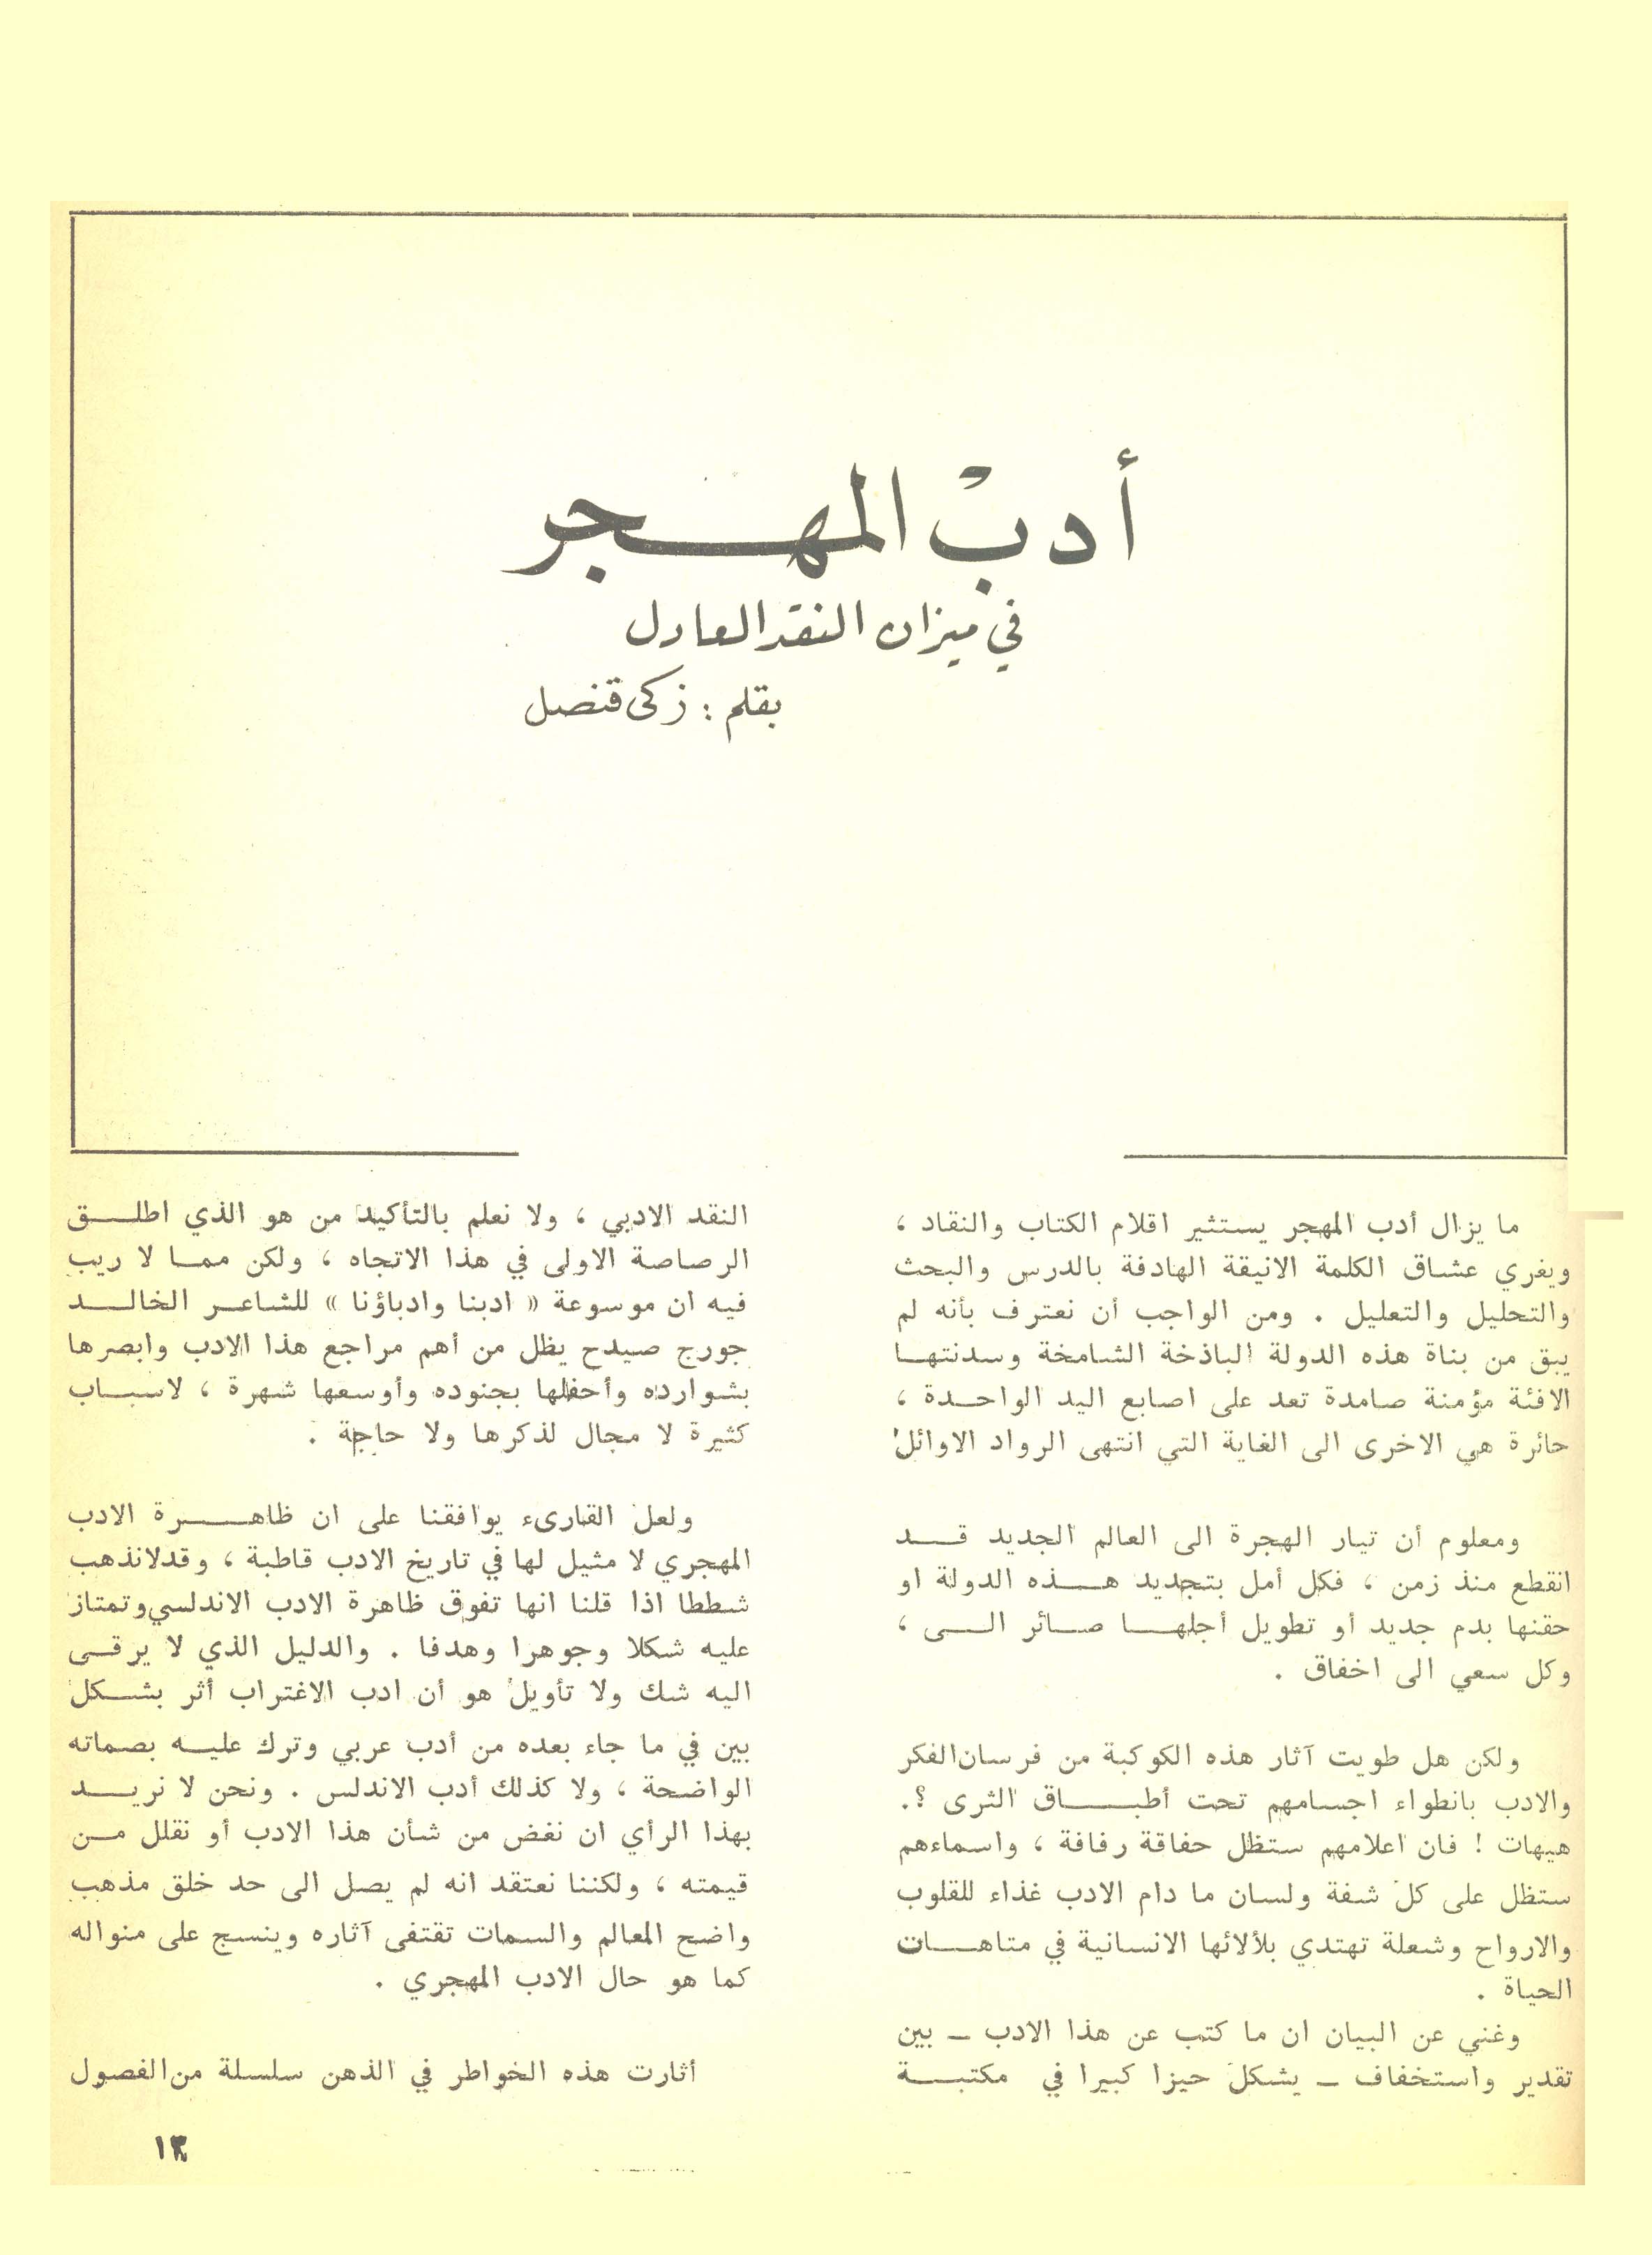 أدبْ المهجر
في ميزان النقد العادل
بقلم : زكى قنصل
ما يزال أدب المهجر يستثير اقلام الكتاب والنقاد ،
ويغري عشاق الكلمة الانيقة الهادفة بالدرس والبحث
والتحليل والتعليل . ومن الواجب أن نعترف بأنه لم
يبق من بناة هذه الدولة الباذخة الشامخة وسدنتها
الافئة مؤمنة صامدة تعد على اصابع اليد الواحدة ،
حائرة هي الاخرى الى الغاية التي انتهى الرواد الاوائل
ومعلوم أن تيار الهجرة الى العالم الجديد قد
انقطع منذ زمن ، فكل أمل بتجديد هذه الدولة او
حقنها بدم جديد أو تطويل أجلها صائر الى ،
وكل سعي الى اخفاق .
ولكن هل طويت آثار هذه الكوكبة من فرسان الفكر
والادب بانطواء اجسامهم تحت أطباق الثرى ؟.
هيهات ! فان اعلامهم ستظل حفاقة رفافة ، واسماءهم
ستظل على كل شفة ولسان ما دام الادب غذاء للقلوب
والارواح وشعلة تهتدي بلألائها الانسانية في متاهات
الحياة .
وغني عن البيان ان ما كتب عن هذا الادب – بين
تقدير واستخفاف – يشكل حيزا كبيرا في مكتبة
النقد الادبي ، ولا نعلم بالتأكيد من هو الذي اطلق
الرصاصة الاولى في هذا الاتجاه ، ولكن مما لا ريب
فيه ان موسوعة « ادبنا وادباؤنا » للشاعر الخالد
جورج صيدح يظل من أهم مراجع هذا الادب وابصرها
بشوارده وأحفلها بجنوده وأوسعها شهرة ، لاسباب
كثيرة لا مجال لذكرها ولا حاجة .
ولعل القارىء يوافقنا على ان ظاهرة الادب
المهجري لا مثيل لها في تاريخ الادب قاطبة ، وقدلانذهب
شططا اذا قلنا انها تفوق ظاهرة الادب الاندلسي وتمتاز
عليه شكلا وجوهرا وهدفا . والدليل الذي لا يرقى
اليه شك ولا تأويل هو أن ادب الاغتراب أثر بشكل
بين في ما جاء بعده من أدب عربي وترك عليه بصماته
الواضحة ، ولا كذلك أدب الاندلس . ونحن لا نريد
بهذا الرأي ان نغض من شأن هذا الادب أو نقلل من
قيمته ، ولكننا نعتقد انه لم يصل الى حد خلق مذهب
واضح المعالم والسمات تقتفى آثاره وينسج على منواله
كما هو حال الادب المهجري .
أثارت هذه الخواطر في الذهن سلسلة من الفصول
١٣